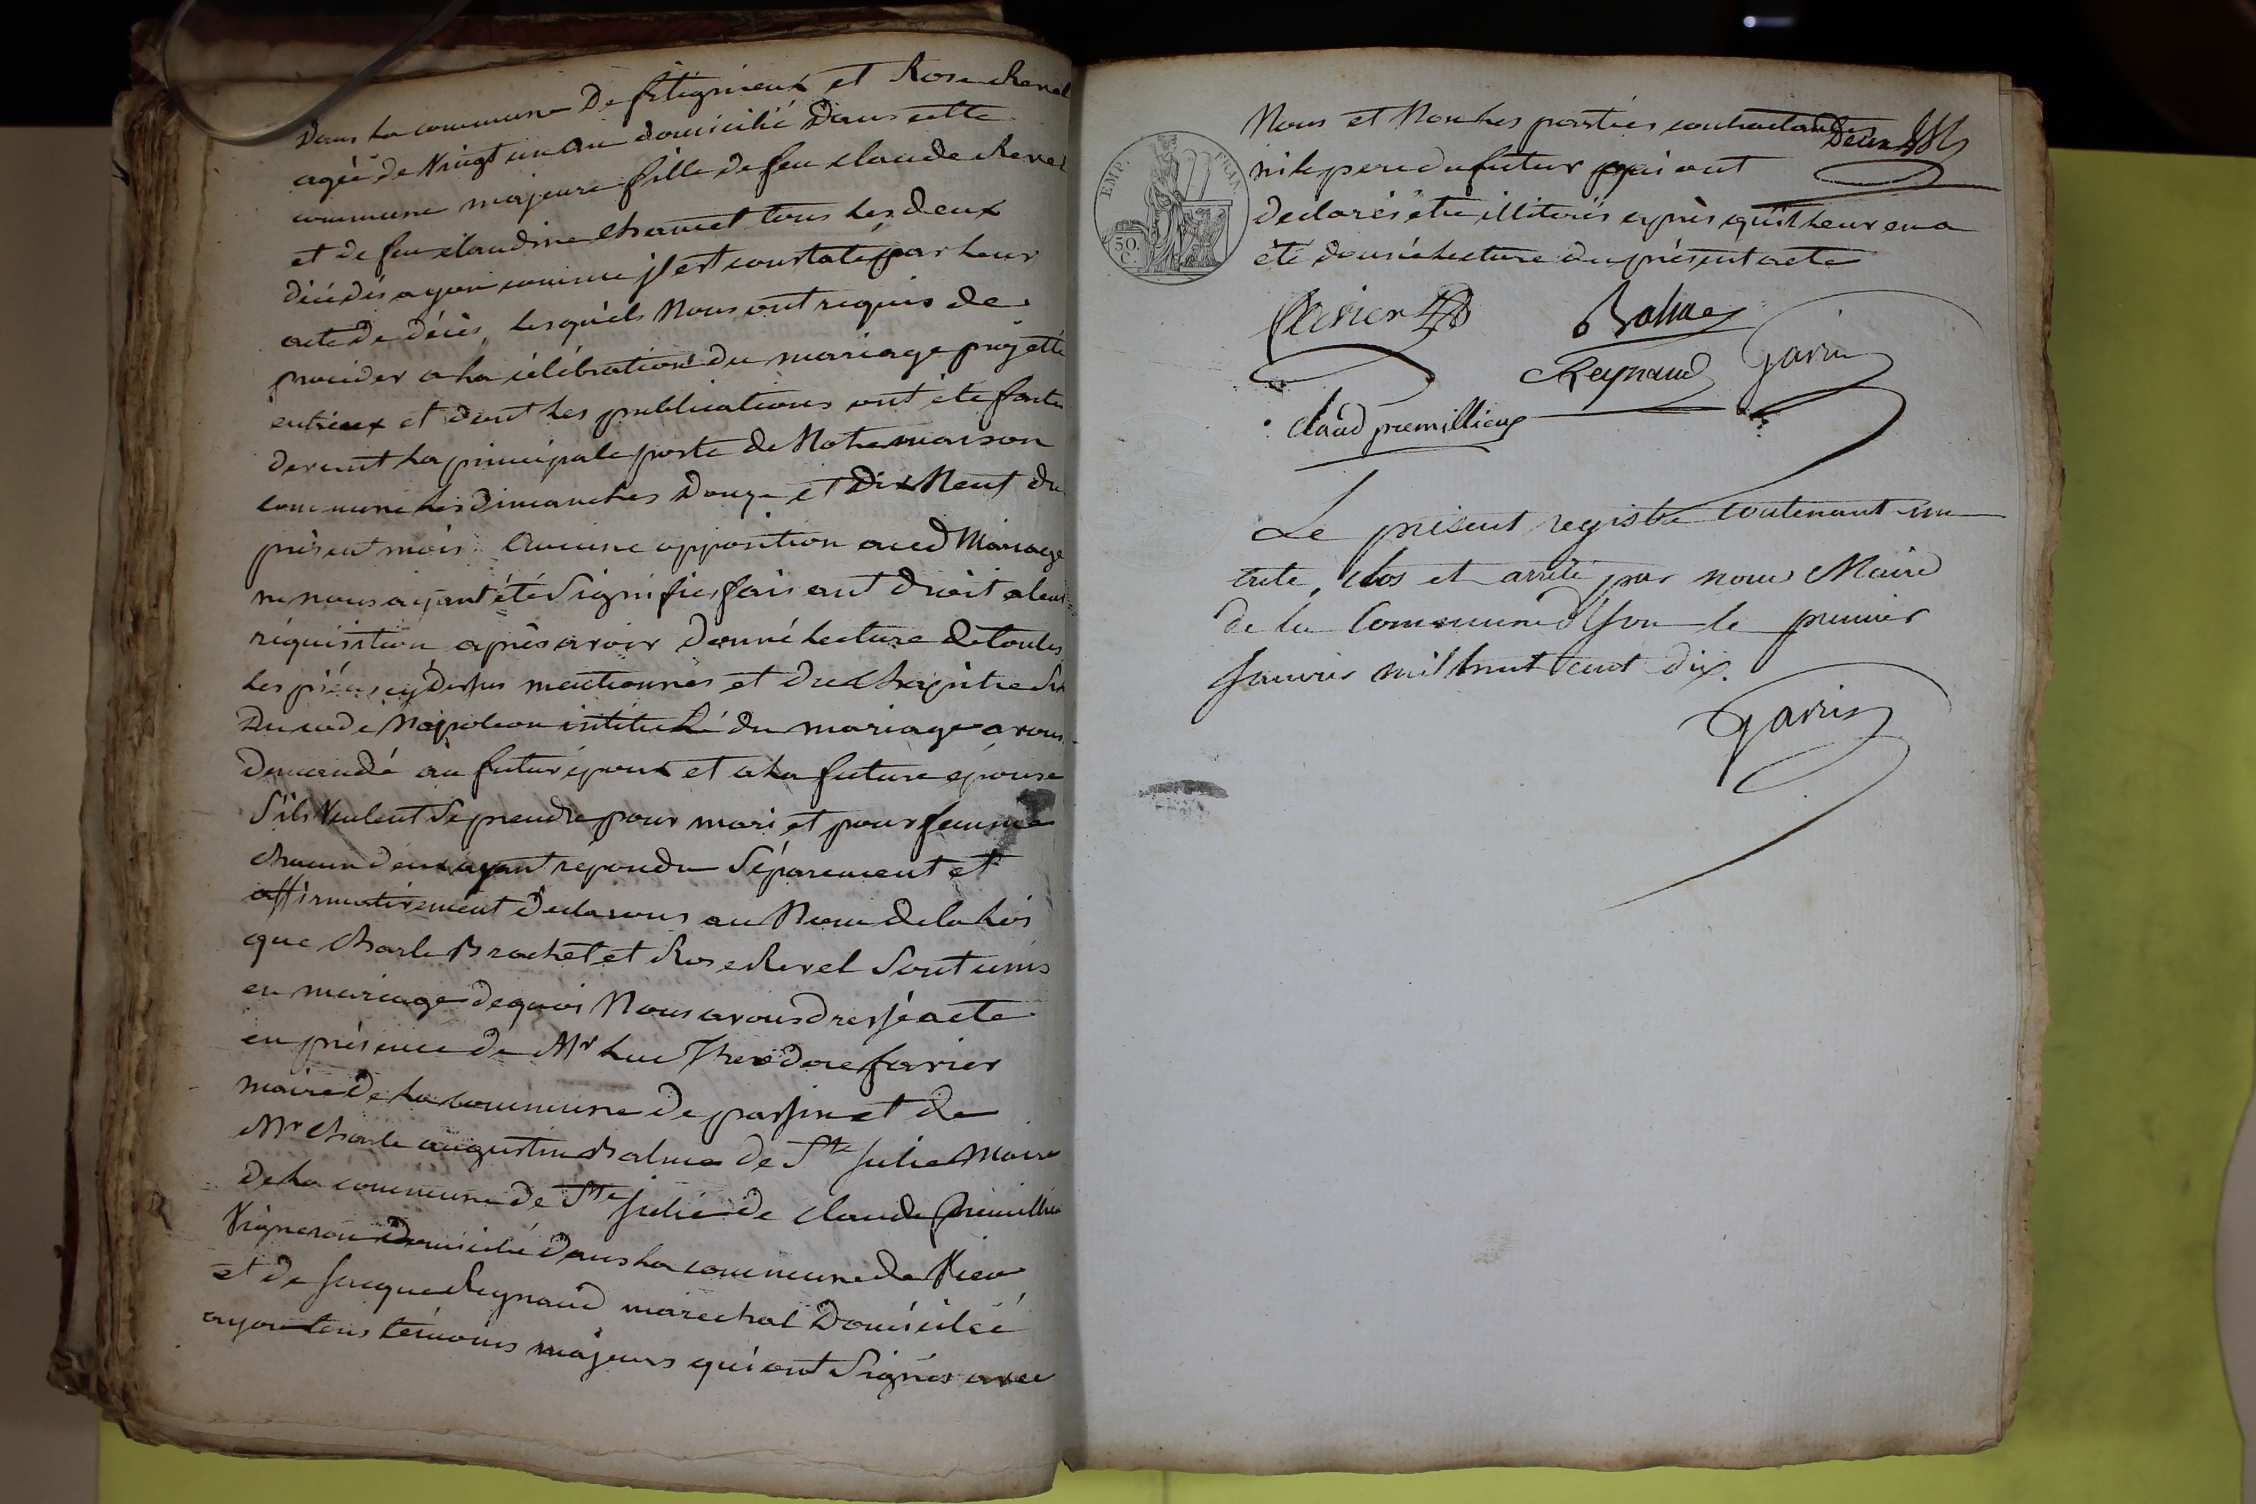 Dans la commune De fitignieux et Rose Revel
agée de Vingt un an domicilié Dans cette
commune majeure fille de feu claude Revel
et de feu claudine chamet tous les deux
décédés a yon comme jl est constaté par leur
acte de décès, lesquels Nous ont requis de
proceder a la célébration du mariage projetté
entr'eux et dont les publications ont été faites
devant la principale porte de Notre maison
commune les Dimanches Douze et Dix Neuf du
présent mois. Aucune opposition aud Mariage
ne nous ayant été Signifiés faisant droit a leur
réquisition après avoir donné lecture de toutes
les piéces cy dessus mentionnés et du chapitre Six
Du code Napoleon intitulé du mariage avons
demandé au futur époux et a la future épouse
S'ils Veulent Se prendre pour mari et pour femme
chacun d'eux ayant répondu Séparement et
affirmativement declarons au Nom de la loi
que charle Brachet et Rose Revel Sont unis
en mariage de quoi Nous avons dressé acte
en présence de Mr Luc Theodore favier
maire de la commune de passin et de
Mr charle augustin Balme de Ste Julie Maire
de la commune de Ste Julie de claude premillieu
Vigneron domicilié dans la commune de Vieu
et de Jacque Reynaud marechal domicilié
a yon tous témoins majeurs qui ont Signés avec
Nous et Non les parties contractantes
ni le pere du futur qui ont
declarés être illiterés après qu'il leur en a
été donné lecture du présent acte
EMP. FRAN.
50. C.
favier
Balme
Reynaud
Garin
claud premillieux
Le présent registre contenant un
acte, clos et arrêté par nous Maire
de la Commune d'Yon le premier
Janvier mil huit cent dix.
Garin